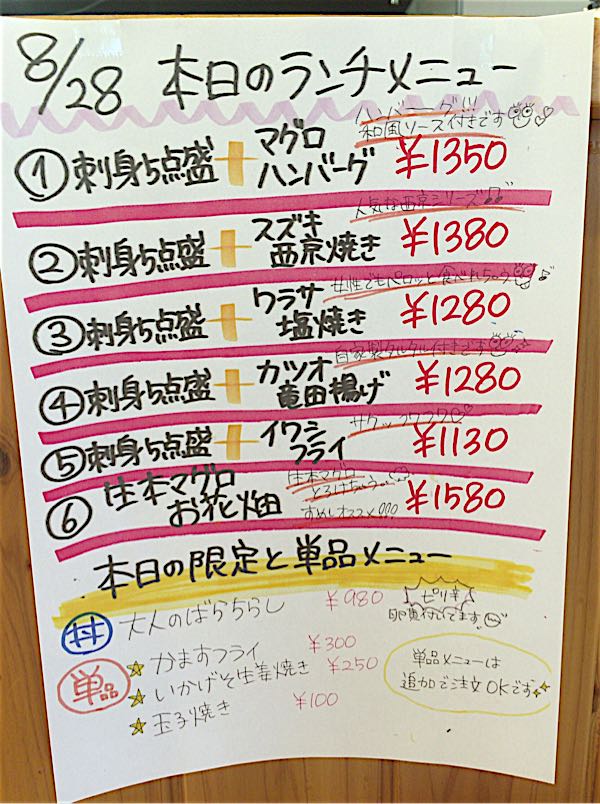 8/28 本日のランチメニュー
ハンバーグ!!!
和風ソース付きです
① 刺身5点盛 + マグロ ハンバーグ ¥1350
人気な西京シリーズ♪♪
② 刺身5点盛 + スズキ 西京焼き ¥1380
女性でもペロッと食べれちゃう♪
③ 刺身5点盛 + ワラサ 塩焼き ¥1280
自家製タルタル付きです
④ 刺身5点盛 + カツオ 竜田揚げ ¥1280
サクッフワフワ
⑤ 刺身5点盛 + イワシ フライ ¥1130
生本マグロ
とろけちゃう
すめしオススメ!!!
⑥ 生本マグロ お花畑 ¥1580
本日の限定と単品メニュー
丼 大人のばらちらし ¥980
ピリ辛
単品
★ かますフライ ¥300
★ いかげそ生姜焼き ¥250
★ 玉子焼き ¥100
単品メニューは
追加で注文OKです